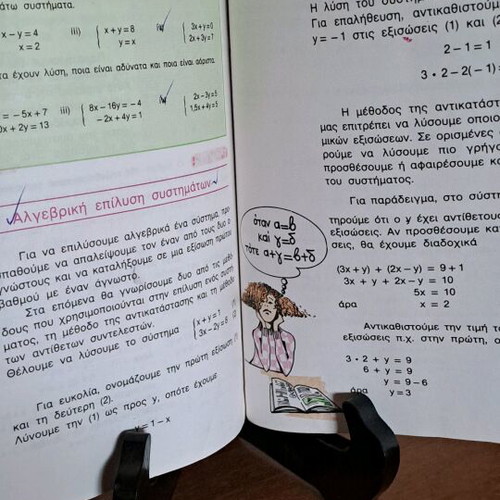 άτω συστήματα.
x − y = 4
x = 2
iii)
x + y = 8
y = x
iv)
3x + y = 0
2x + 3y = 7
τα έχουν λύση, ποια είναι αδύνατα και ποια είναι αόριστα
= −5x + 7
0x + 2y = 13
iii)
8x − 16y = −4
−2x + 4y = 1
iv)
2x − 3y = 5
1,5x + 4y = 5
Αλγεβρική επίλυση συστημάτων
Για να επιλύσουμε αλγεβρικά ένα σύστημα, προ
σπαθούμε να απαλείψουμε τον έναν από τους δυο α
γνώστους και να καταλήξουμε σε μια εξίσωση πρώτου
βαθμού με έναν άγνωστο.
Στα επόμενα θα γνωρίσουμε δυο από τις μεθό
δους που χρησιμοποιούνται στην επίλυση ενός συστή
ματος, τη μέθοδο της αντικατάστασης και τη μέθοδο
των αντίθετων συντελεστών.
Θέλουμε να λύσουμε το σύστημα
x + y = 1 (1)
3x − 2y = 8 (2)
Για ευκολία, ονομάζουμε την πρώτη εξίσωση (1)
και τη δεύτερη (2).
Λύνουμε την (1) ως προς y, οπότε έχουμε
y = 1 − x
Η λύση του συστ
Για επαλήθευση, αντικαθιστούμ
y = −1 στις εξισώσεις (1) και (2
2 − 1 = 1
3 • 2 − 2(−1) =
Η μέθοδος της αντικατάστ
μας επιτρέπει να λύσουμε οποιο
μικών εξισώσεων. Σε ορισμένες
ρούμε να λύσουμε πιο γρήγο
προσθέσουμε ή αφαιρέσουμε κα
του συστήματος.
Για παράδειγμα, στο σύστη
όταν α=β
και γ=δ
τότε α+γ=β+δ
τηρούμε ότι ο y έχει αντίθετου
εξισώσεις. Αν προσθέσουμε κατ
σεις, θα έχουμε διαδοχικά
(3x + y) + (2x − y) = 9 + 1
3x + y + 2x − y = 10
5x = 10
άρα x = 2
Αντικαθιστούμε την τιμή το
εξισώσεις π.χ. στην πρώτη, ο
3 • 2 + y = 9
6 + y = 9
y = 9 − 6
άρα y = 3